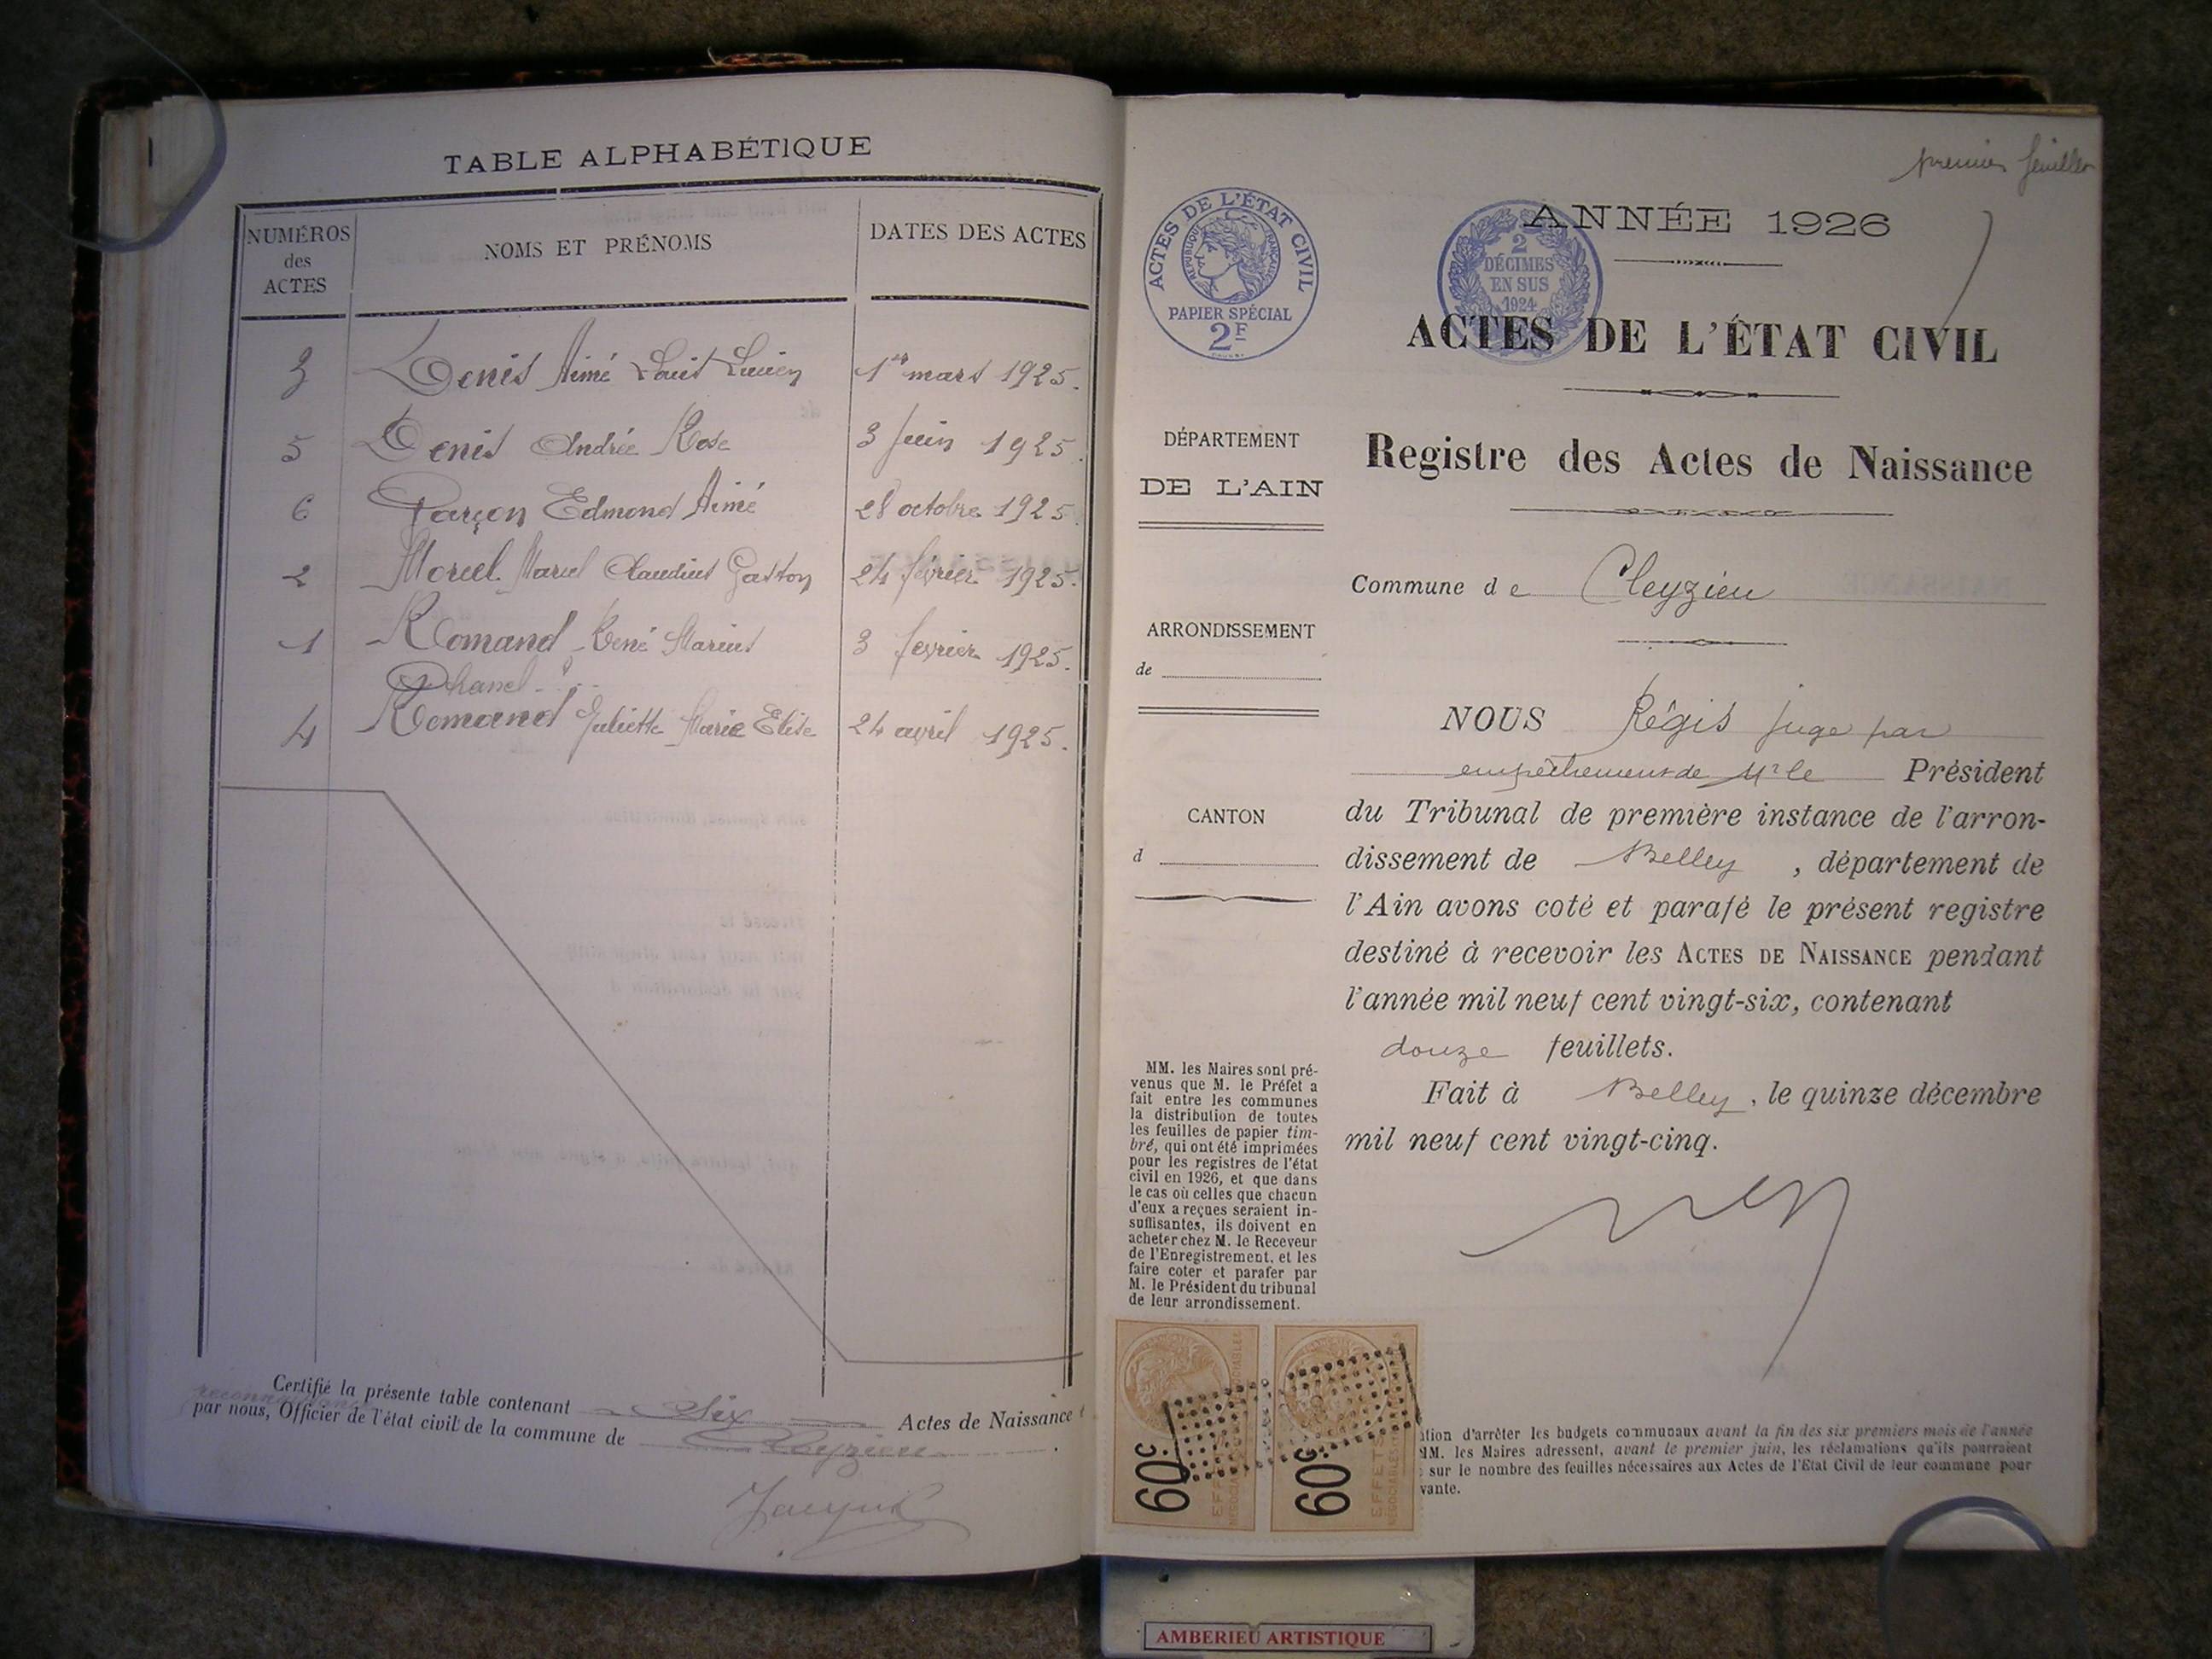 TABLE ALPHABÉTIQUE
NUMÉROS des ACTES
NOMS ET PRÉNOMS
DATES DES ACTES
3 Denis Aimé Louis Lucien 1er mars 1925.
5 Denis Andrée Rose 3 Juin 1925.
6 Garçon Edmond Aimé 28 octobre 1925
2 Morel Marcel Claudius Gaston 24 février 1925.
1 Romand René Marius 3 fevrier 1925.
4 Romand Juliette Marie Elise 24 avril 1925.
Certifié la présente table contenant Six Actes de Naissance
par nous, Officier de l'état civil de la commune de Cleyzieu.
premier feuillet
ANNÉE 1926
ACTES DE L'ÉTAT CIVIL
RÉPUBLIQUE FRANÇAISE
PAPIER SPÉCIAL
2F
2
DÉCIMES
EN SUS
1924
ACTES DE L'ÉTAT CIVIL
Registre des Actes de Naissance
DÉPARTEMENT
DE L'AIN
Commune de Cleyzieu
ARRONDISSEMENT
de
CANTON
d
NOUS Régis juge par
empêchement de Mr le Président
du Tribunal de première instance de l'arron-
dissement de Belley, département de
l'Ain avons coté et parafé le présent registre
destiné à recevoir les ACTES DE NAISSANCE pendant
l'année mil neuf cent vingt-six, contenant
douze feuillets.
Fait à Belley, le quinze décembre
mil neuf cent vingt-cinq.
MM. les Maires sont pré-
venus que M. le Préfet a
fait entre les communes
la distribution de toutes
les feuilles de papier tim-
bré, qui ont été imprimées
pour les registres de l'état
civil en 1926, et que dans
le cas où celles que chacun
d'eux a reçues seraient in-
suffisantes, ils doivent en
acheter chez M. le Receveur
de l'Enregistrement, et les
faire coter et parafer par
M. le Président du tribunal
de leur arrondissement.
60c
EFFETS
60c
EFFETS
tion d'arrêter les budgets communaux avant la fin des six premiers mois de l'année
MM. les Maires adressent, avant le premier juin, les réclamations qu'ils pourraient
sur le nombre des feuilles nécessaires aux Actes de l'Etat Civil de leur commune pour
vante.
AMBERIEU ARTISTIQUE